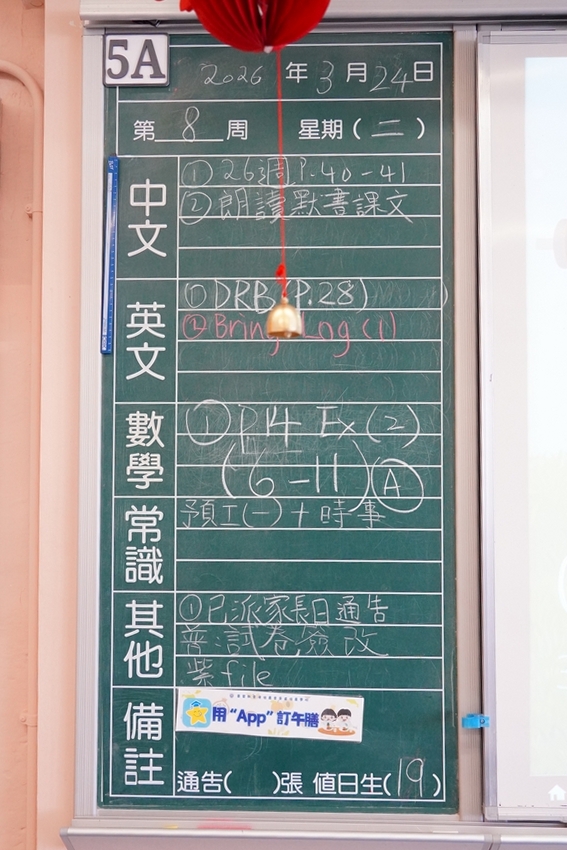 5A
2026 年 3 月 24 日
第 8 周 星期 ( 二 )
中文
① 26週 P.40-41
② 朗讀默書課文
英文
① DRB (P.28)
② Bring Lng (1)
數學
① P.14 Ex (2)
(6-11) Ⓐ
常識
預工(一) + 時事
其他
① 已派家長日通告
普:試卷簽改
紫file
備註
用 “App” 訂午膳
通告( )張 值日生(19)